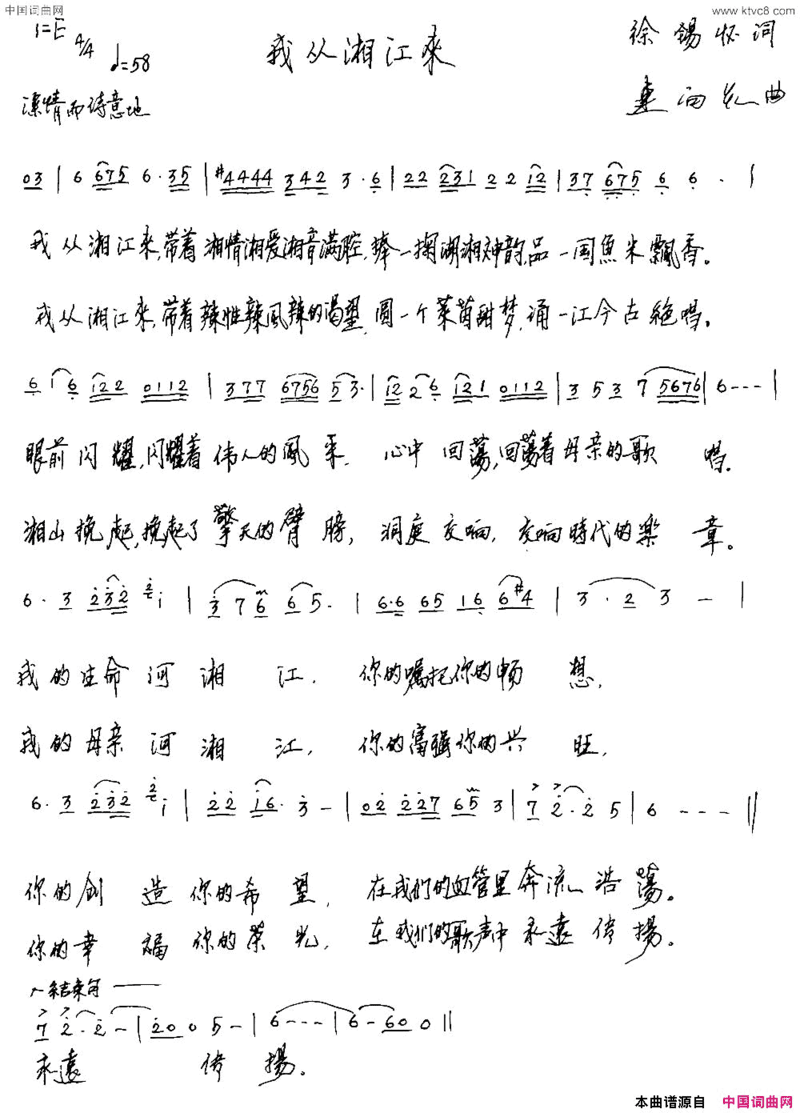 中国词曲网
www.ktvc8.com
1=E 4/4 ♩=58
我从湘江來
徐錫怀词
曲
深情而诗意地
03 | 6 675 6·35 | #4444 342 3·6 | 22 231 22 12 | 37 675 6 6 · |
我从湘江来,带着湘情湘爱湘音满腔,捧一掬湖湘神韵,品一国魚米飄香。
我从湘江来,带着辣性辣風辣的渴望,圆一个莱茵甜梦,诵一江今古絶唱。
6 i 6 122 0112 | 377 6756 53· | 122 6 121 0112 | 3 53 7 5676 | 6 - - - |
眼前闪耀,闪耀着伟人的風采, 心中回蕩,回蕩着母亲的歌唱.
湘山挽起,挽起了擎天的臂膀, 洞庭交响,交响時代的樂章。
6·3 232 2 i | 3 7 6 65· | 6·6 65 16 6#4 | 3·2 3 - |
我的生命河湘江, 你的嘱托你的畅想,
我的母亲河湘江, 你的富强你的兴旺,
6·3 232 2 i | 22 16· 3 - | 02 227 65 3 | 7 2·2 5 | 6 - - - ||
你的創造你的希望, 在我们的血管里奔流浩蕩。
你的幸福你的荣光, 在我们的歌声中永遠传揚。
结束句
7 2·2 - | 20 0 5 - | 6 - - - | 6 - 60 0 ||
永遠传揚。
本曲谱源自 中国词曲网